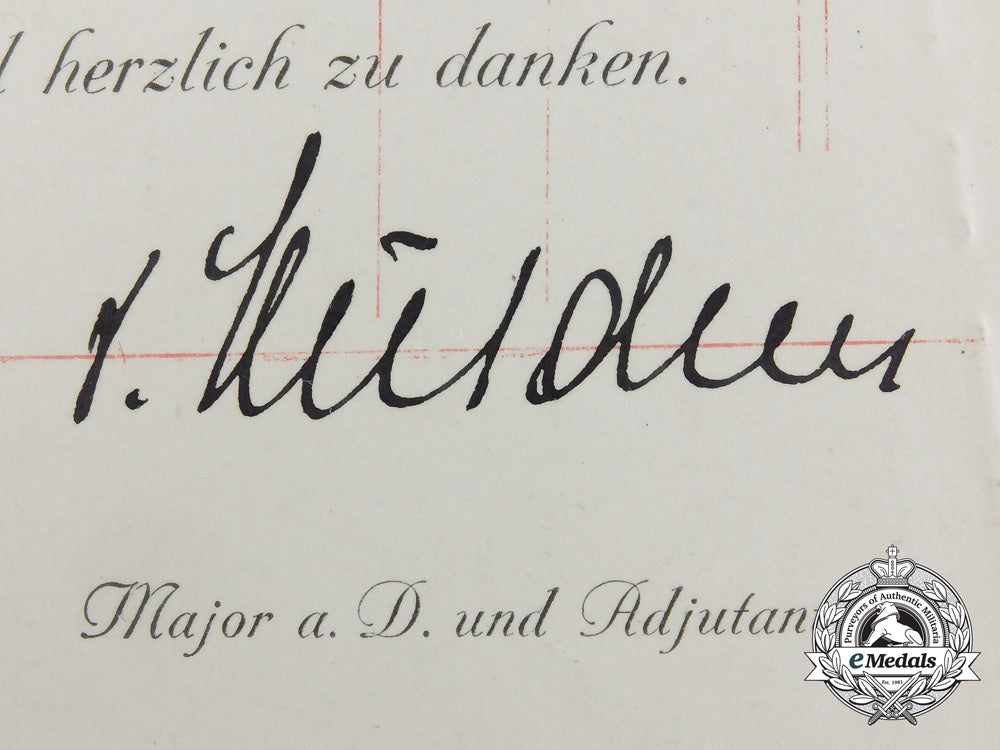 herzlich zu danken.
v.
Major a. D. und Adjutant
Purveyors of Authentic Militaria
eMedals
Est. 1981